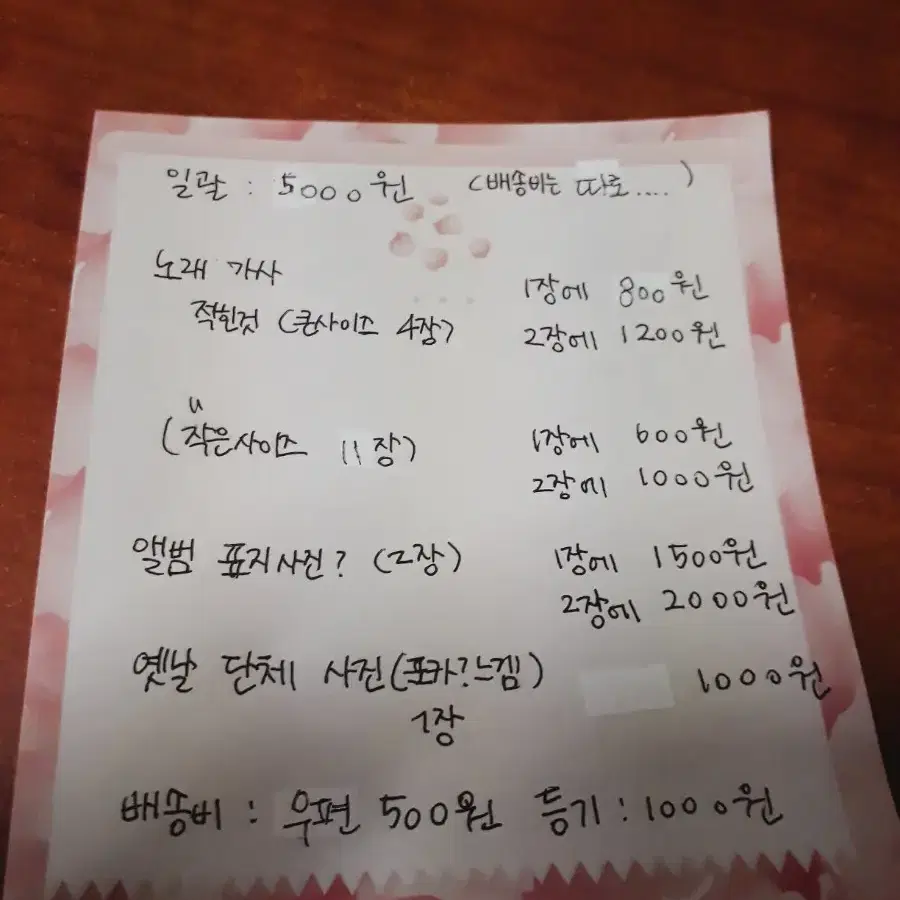 일괄 : 5000원 (배송비는 따로....)
노래 가사 1장에 800원
적힌것 (큰사이즈 4장) 2장에 1200원
(작은사이즈 11장) 1장에 600원
2장에 1000원
앨범 표지사진? (2장) 1장에 1500원
2장에 2000원
옛날 단체 사진(포카?느낌) 1000원
1장
배송비 : 우편 500원 등기 : 1000원